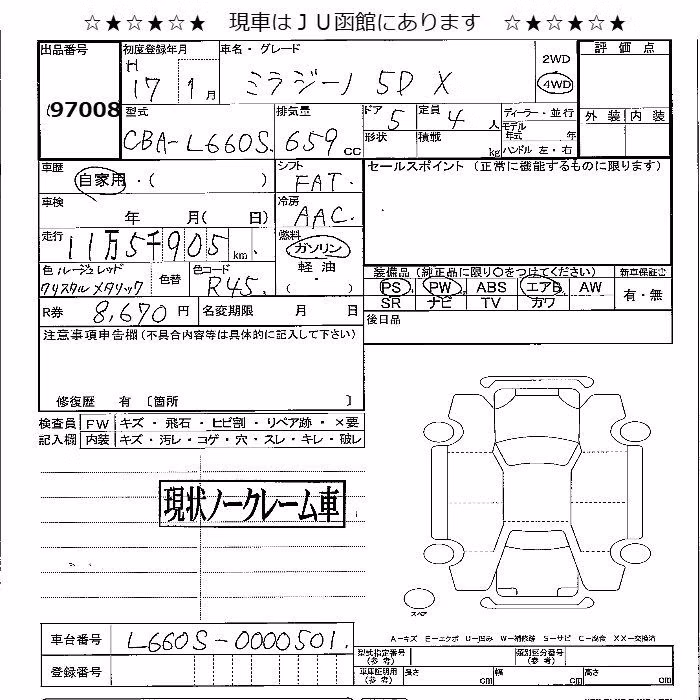 ☆★☆★☆★ 現車はＪＵ函館にあります ☆★☆★☆★
出品番号 初度登録年月 車名・グレード 2WD 評価点
97008 H 17 1月 ミラジーノ 5D X 4WD
型式 排気量 ドア 5 定員 4人 ディーラー・並行 外装 内装
CBA-L660S. 659cc 形状 積載 kg モデル年式 年
ハンドル 左・右
車歴 自家用・( ) シフト FAT. セールスポイント（正常に機能するものに限ります）
車検 年 月( 日) 冷房 AAC.
走行 11万5千905km. 燃料 ガソリン
軽油
( ・ )
色 ルージュレッド 色替 色コード 装備品（純正品に限り○をつけてください） 新車保証書
クリスタルメタリック R45. PS PW ABS エアB AW 有・無
SR ナビ TV カワ
R券 8,670円 名変期限 月 日 後日品
注意事項申告欄(不具合内容等は具体的に記入して下さい)
修復歴 有 〔箇所 〕
検査員 FW キズ・飛石・ヒビ割・リペア跡・×要
記入欄 内装 キズ・汚レ・コゲ・穴・スレ・キレ・破レ
現状ノークレーム車
スペア
A－キズ E－エクボ U－凹み W－補修跡 S－サビ C－腐食 XX－交換済
車台番号 L660S-0000501. 型式指定番号(参考) 類別区分番号(参考)
登録番号 車庫証明用(参考) 長さ cm 幅 cm 高さ cm